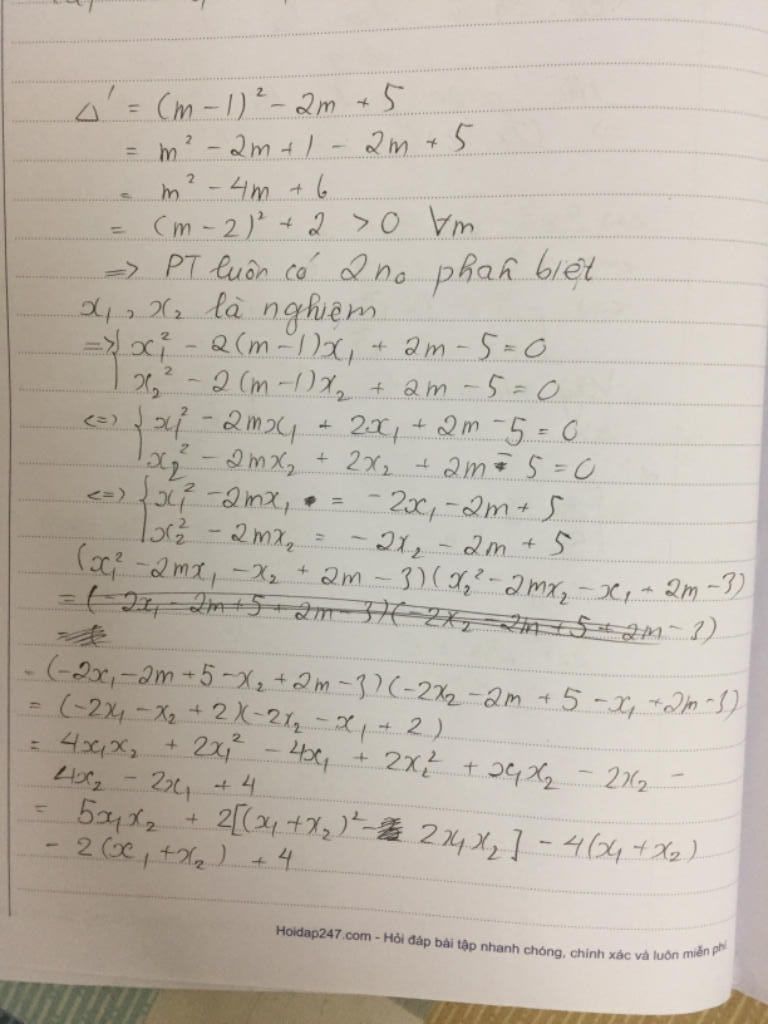 Δ' = (m - 1)² - 2m + 5
= m² - 2m + 1 - 2m + 5
= m² - 4m + 6
= (m - 2)² + 2 > 0 ∀m
=> PT luôn có 2 no phân biệt
x₁, x₂ là nghiệm
=> { x₁² - 2(m-1)x₁ + 2m - 5 = 0
x₂² - 2(m-1)x₂ + 2m - 5 = 0
<=> { x₁² - 2mx₁ + 2x₁ + 2m - 5 = 0
x₂² - 2mx₂ + 2x₂ + 2m - 5 = 0
<=> { x₁² - 2mx₁ = -2x₁ - 2m + 5
x₂² - 2mx₂ = -2x₂ - 2m + 5
(x₁² - 2mx₁ - x₂ + 2m - 3)(x₂² - 2mx₂ - x₁ + 2m - 3)
= (-2x₁ - 2m + 5 + 2m - 3)(-2x₂ - 2m + 5 + 2m - 3)
= (-2x₁ - 2m + 5 - x₂ + 2m - 3)(-2x₂ - 2m + 5 - x₁ + 2m - 3)
= (-2x₁ - x₂ + 2)(-2x₂ - x₁ + 2)
= 4x₁x₂ + 2x₁² - 4x₁ + 2x₂² + x₁x₂ - 2x₂ -
4x₂ - 2x₁ + 4
= 5x₁x₂ + 2[(x₁ + x₂)² - 2x₁x₂] - 4(x₁ + x₂)
- 2(x₁ + x₂) + 4
Hoidap247.com - Hỏi đáp bài tập nhanh chóng, chính xác và luôn miễn phí